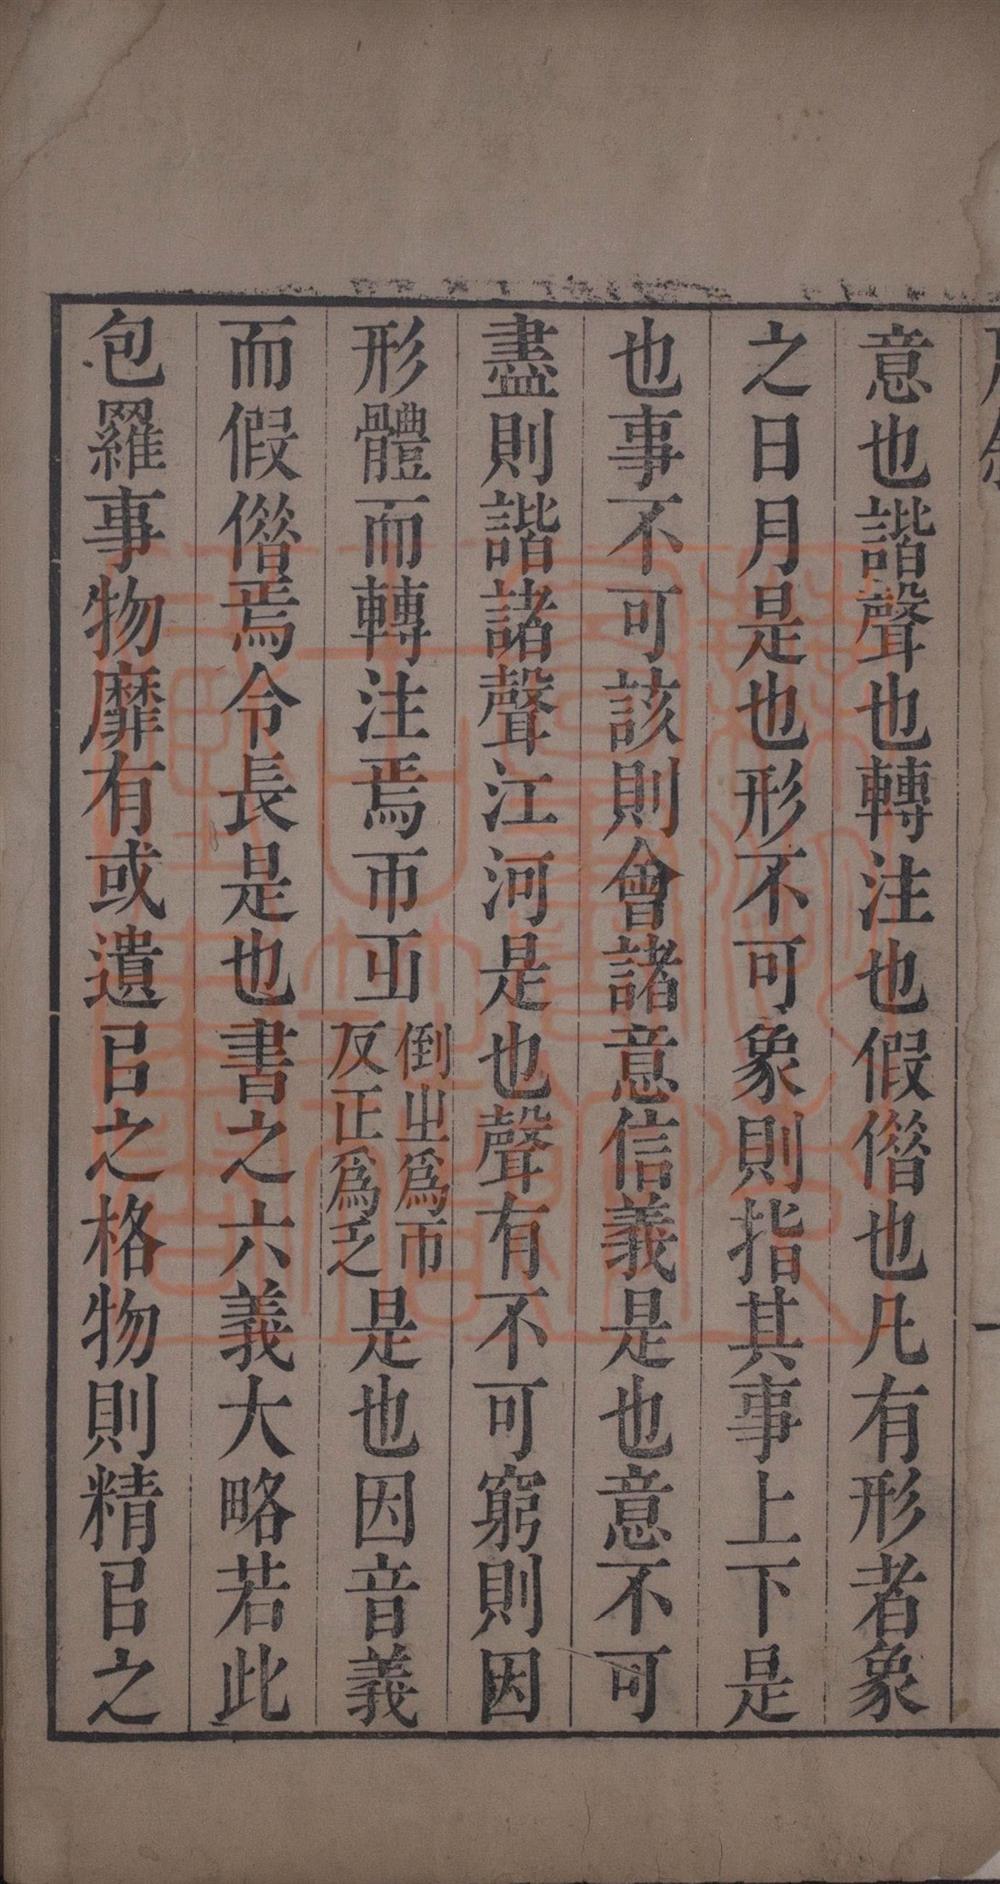 意也諧聲也轉注也假偺也凡有形者象
之日月是也形不可象則指其事上下是
也事不可該則會諸意信義是也意不可
盡則諧諸聲江河是也聲有不可窮則因
形體而轉注焉帀𤴓倒㞢爲帀反正爲乏是也因音義
而假偺焉令長是也書之六義大略若此
包羅事物靡有或遺㠯之格物則精㠯之